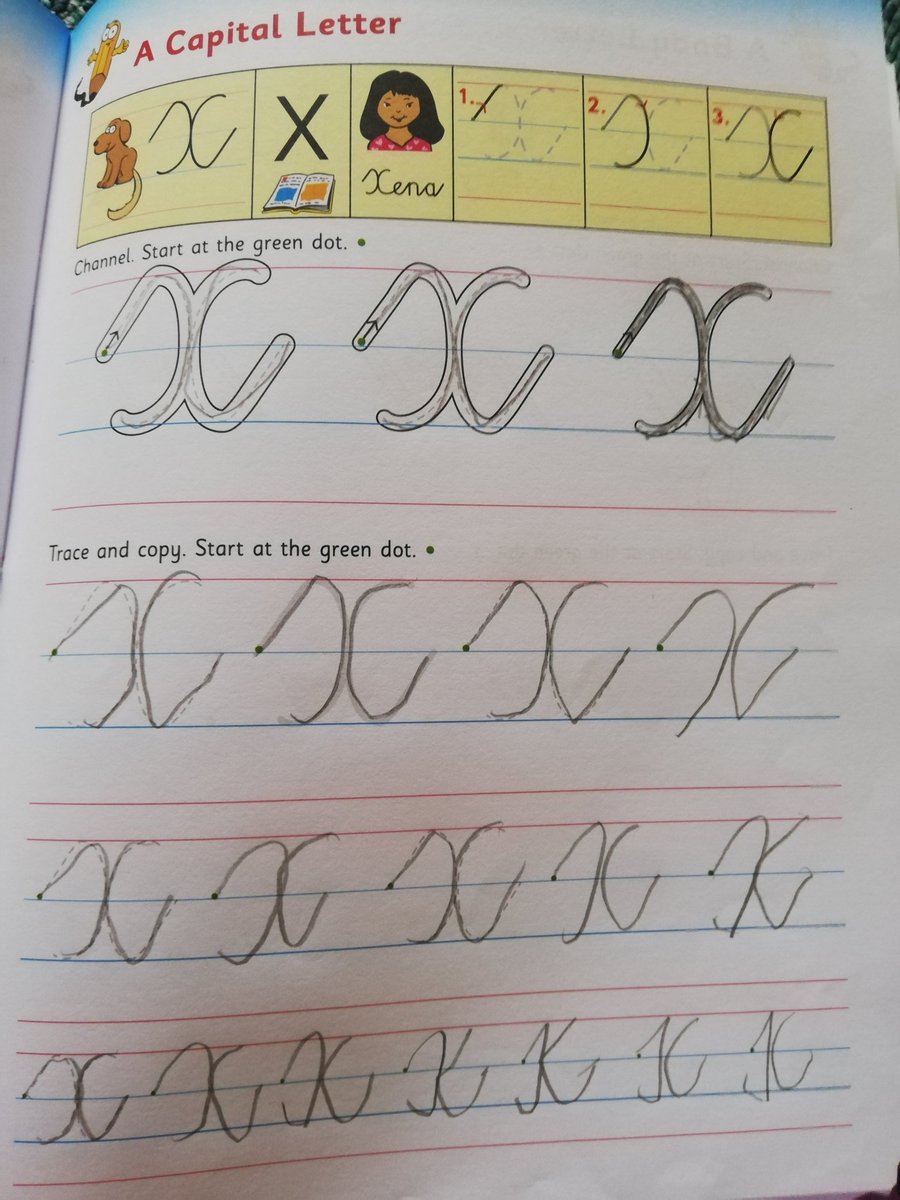 A Capital Letter
X X Xena 1. 2. 3.
Channel. Start at the green dot.
X X X
Trace and copy. Start at the green dot.
X X X X
X X X X X
X X X X X X X